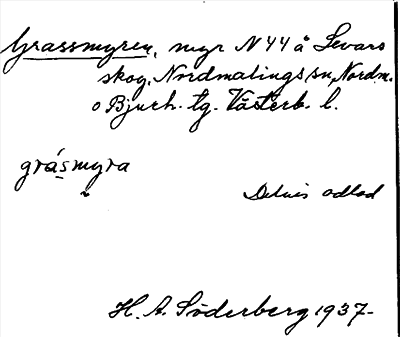 Grassmyren, myr N 44 å Levars
skog, Nordmalings sn, Nordm.
o Bjurh. tg. Västerb. l.
gråsmyra
Delvis odlad
H. A. Söderberg 1937-